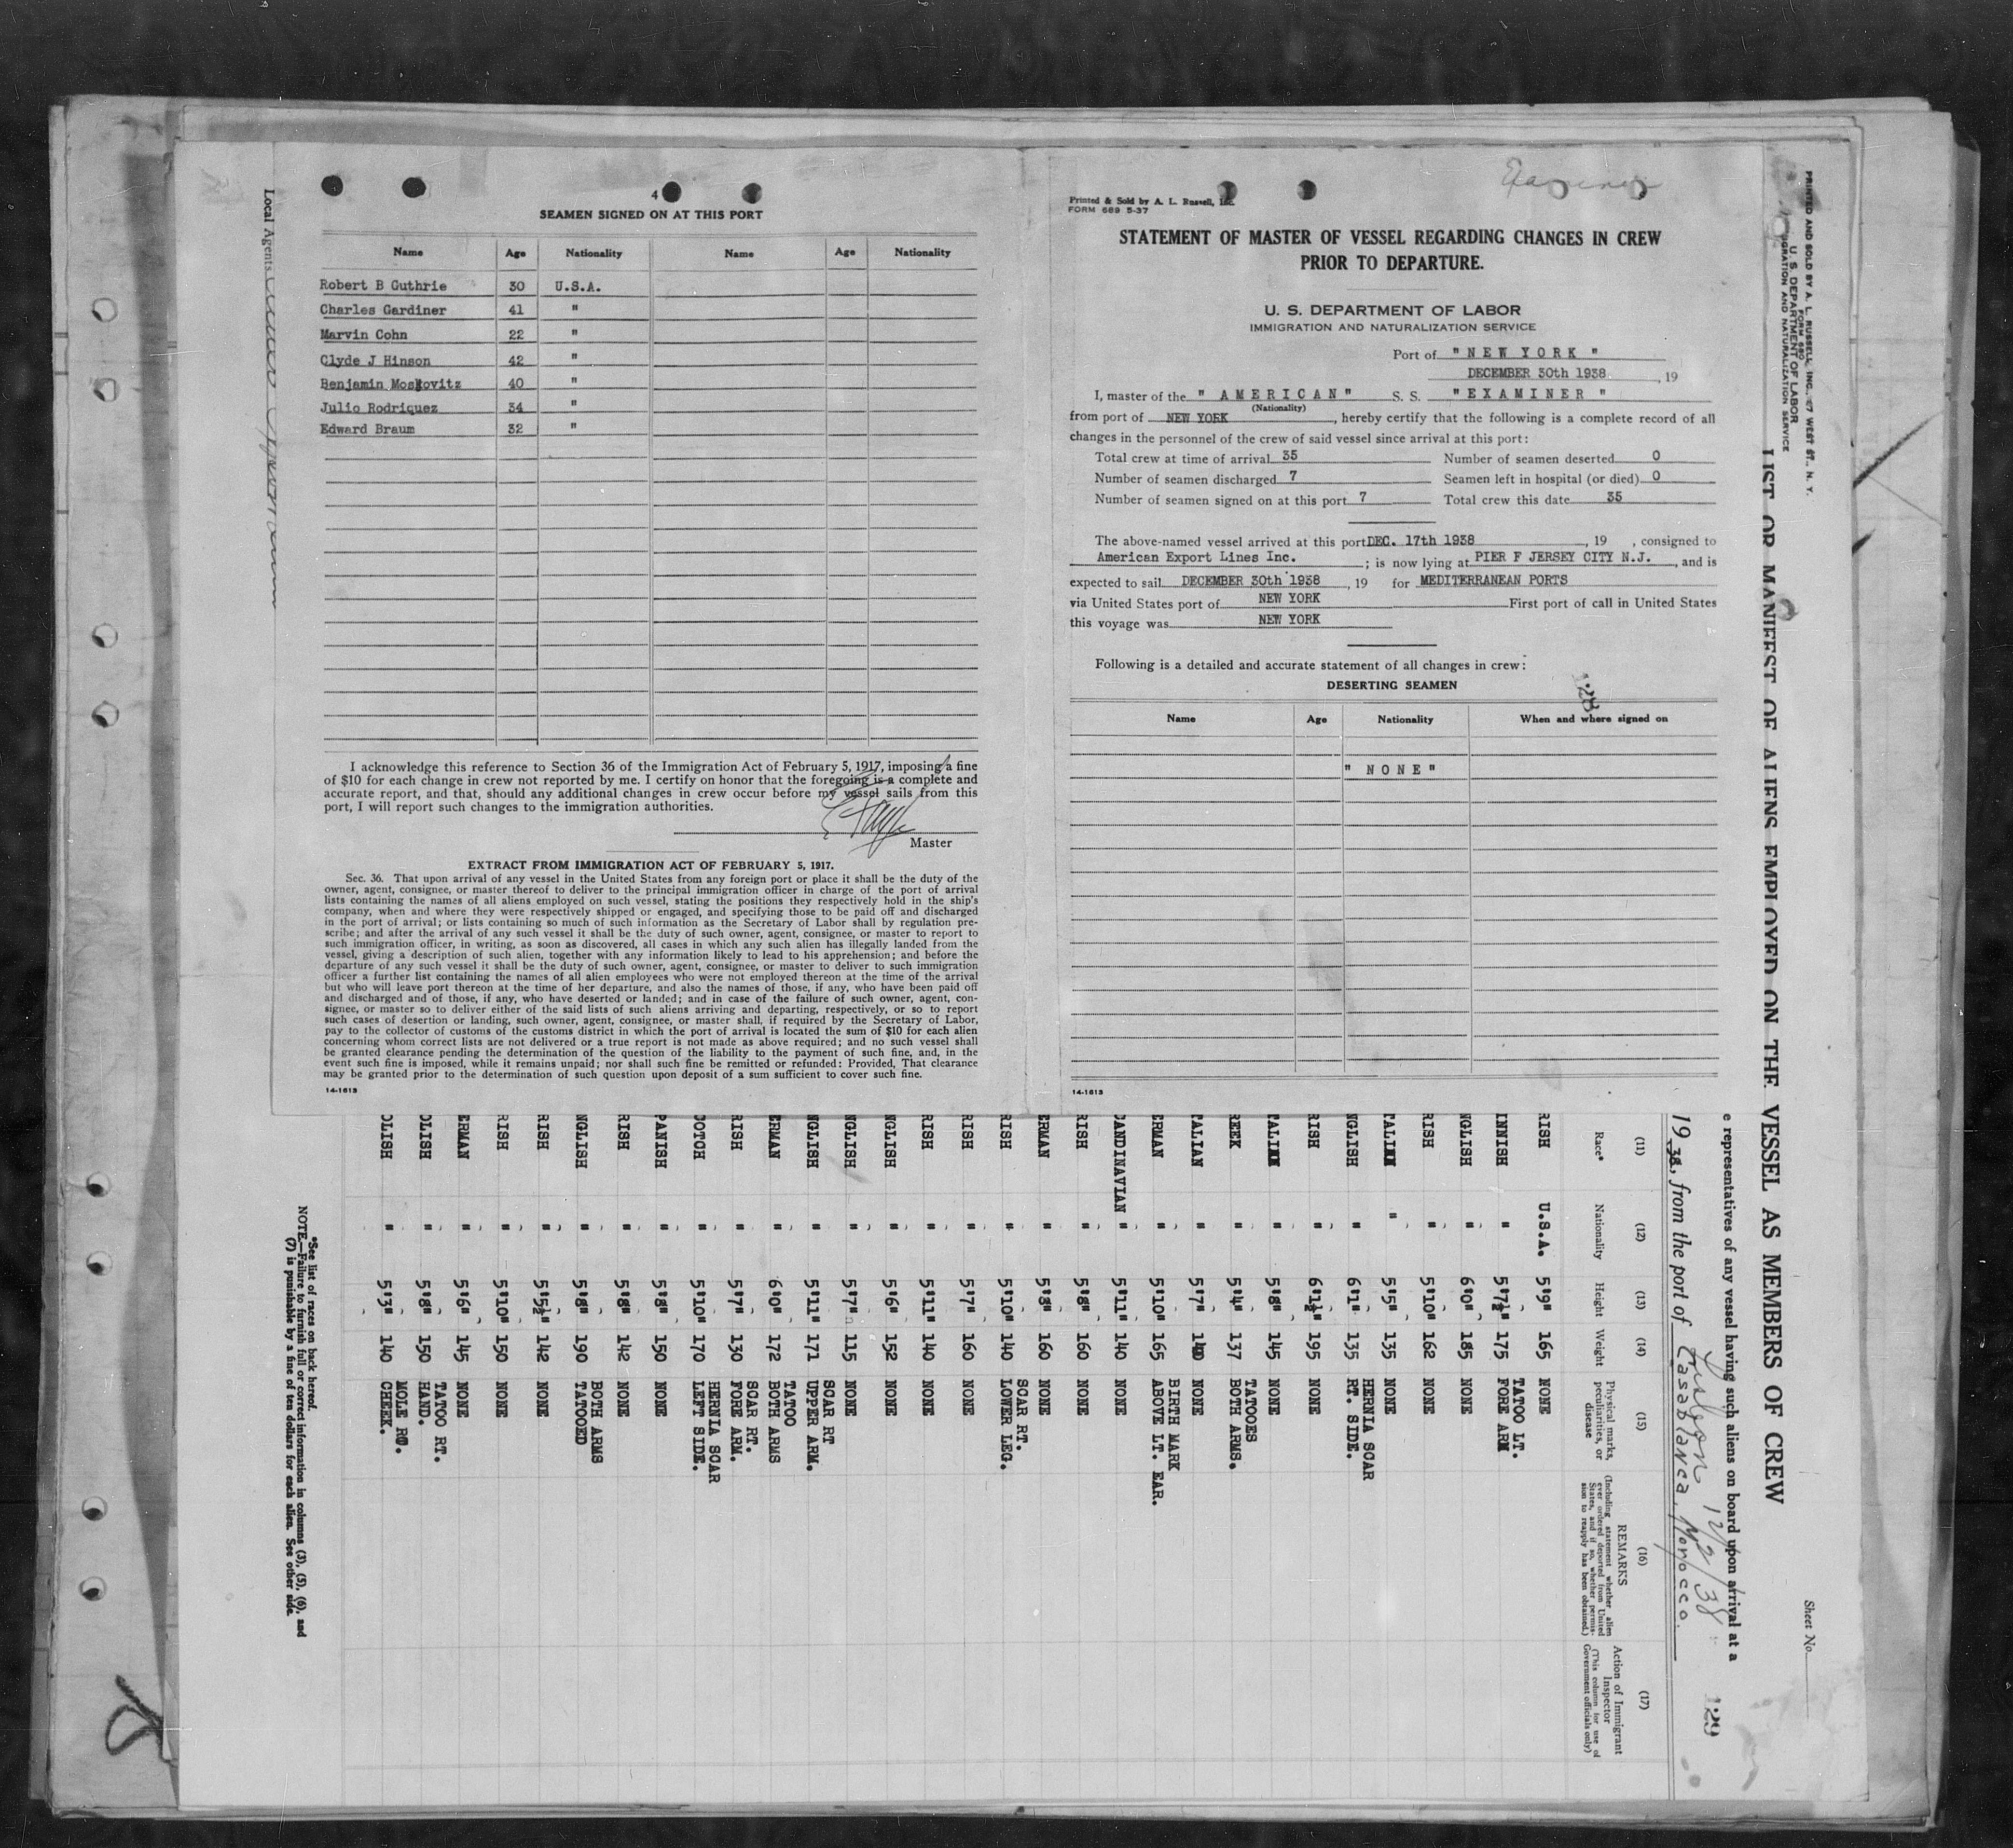 4
SEAMEN SIGNED ON AT THIS PORT
Name Age Nationality Name Age Nationality
Robert B Guthrie 30 U.S.A.
Charles Gardiner 41 "
Marvin Cohn 22 "
Clyde J Hinson 42 "
Benjamin Moskovitz 40 "
Julio Rodriquez 34 "
Edward Braum 32 "
I acknowledge this reference to Section 36 of the Immigration Act of February 5, 1917, imposing a fine
of $10 for each change in crew not reported by me. I certify on honor that the foregoing is a complete and
accurate report, and that, should any additional changes in crew occur before my vessel sails from this
port, I will report such changes to the immigration authorities.
Master
EXTRACT FROM IMMIGRATION ACT OF FEBRUARY 5, 1917.
Sec. 36. That upon arrival of any vessel in the United States from any foreign port or place it shall be the duty of the
owner, agent, consignee, or master thereof to deliver to the principal immigration officer in charge of the port of arrival
lists containing the names of all aliens employed on such vessel, stating the positions they respectively hold in the ship's
company, when and where they were respectively shipped or engaged, and specifying those to be paid off and discharged
in the port of arrival; or lists containing so much of such information as the Secretary of Labor shall by regulation pre-
scribe; and after the arrival of any such vessel it shall be the duty of such owner, agent, consignee, or master to report to
such immigration officer, in writing, as soon as discovered, all cases in which any such alien has illegally landed from the
vessel, giving a description of such alien, together with any information likely to lead to his apprehension; and before the
departure of any such vessel it shall be the duty of such owner, agent, consignee, or master to deliver to such immigration
officer a further list containing the names of all alien employees who were not employed thereon at the time of the arrival
but who will leave port thereon at the time of her departure, and also the names of those, if any, who have been paid off
and discharged and of those, if any, who have deserted or landed; and in case of the failure of such owner, agent, con-
signee, or master so to deliver either of the said lists of such aliens arriving and departing, respectively, or so to report
such cases of desertion or landing, such owner, agent, consignee, or master shall, if required by the Secretary of Labor,
pay to the collector of customs of the customs district in which the port of arrival is located the sum of $10 for each alien
concerning whom correct lists are not delivered or a true report is not made as above required; and no such vessel shall
be granted clearance pending the determination of the question of the liability to the payment of such fine, and, in the
event such fine is imposed, while it remains unpaid; nor shall such fine be remitted or refunded: Provided, That clearance
may be granted prior to the determination of such question upon deposit of a sum sufficient to cover such fine.
14-1613
Examiner
Printed & Sold by A. L. Russell, Inc.
FORM 689 5-37
STATEMENT OF MASTER OF VESSEL REGARDING CHANGES IN CREW
PRIOR TO DEPARTURE.
U. S. DEPARTMENT OF LABOR
IMMIGRATION AND NATURALIZATION SERVICE
Port of " NEW YORK "
DECEMBER 30th 1938 , 19
I, master of the " AMERICAN " S. S. " EXAMINER "
(Nationality)
from port of NEW YORK , hereby certify that the following is a complete record of all
changes in the personnel of the crew of said vessel since arrival at this port:
Total crew at time of arrival 35 Number of seamen deserted 0
Number of seamen discharged 7 Seamen left in hospital (or died) 0
Number of seamen signed on at this port 7 Total crew this date 35
The above-named vessel arrived at this port DEC. 17th 1938 , 19 , consigned to
American Export Lines Inc. ; is now lying at PIER F JERSEY CITY N.J. , and is
expected to sail DECEMBER 30th 1938 , 19 for MEDITERRANEAN PORTS
via United States port of NEW YORK First port of call in United States
this voyage was NEW YORK
Following is a detailed and accurate statement of all changes in crew:
DESERTING SEAMEN
128
Name Age Nationality When and where signed on
" NONE "
14-1613
Local Agents
PRINTED AND SOLD BY A. L. RUSSELL, INC., 67 WEST ST., N. Y.
FORM 680
U. S. DEPARTMENT OF LABOR
IGRATION AND NATURALIZATION SERVICE
Sheet No.
LIST OR MANIFEST OF ALIENS EMPLOYED ON THE VESSEL AS MEMBERS OF CREW
e representatives of any vessel having such aliens on board upon arrival at a
Lisbon 12/2/38
1938, from the port of Casablanca, Morocco.
129
(11) (12) (13) (14) (15) (16) (17)
Race* Nationality Height Weight Physical marks, peculiarities, or disease REMARKS (Including statement whether alien ever ordered deported from United States, and if so, whether permission to reapply has been obtained.) Action of Immigrant Inspector (This column for use of Government officials only)
RISH U.S.A. 5'9" 165 NONE
INNISH " 5'7½" 175 TATOO LT. FORE ARM
NGLISH " 6'0" 185 NONE
RISH " 5'10" 162 NONE
TALIAN " 5'5" 135 NONE
NGLISH " 6'1" 135 HERNIA SCAR RT. SIDE.
RISH " 6'1½" 195 NONE
TALIAN " 5'8" 145 NONE
REEK " 5'4" 137 TATOOES BOTH ARMS.
TALIAN " 5'7" 140 NONE
ERMAN " 5'10" 165 BIRTH MARK ABOVE LT. EAR.
CANDINAVIAN " 5'11" 140 NONE
RISH " 5'8" 160 NONE
ERMAN " 5'8" 160 NONE
RISH " 5'10" 140 SCAR RT. LOWER LEG.
RISH " 5'7" 160 NONE
RISH " 5'11" 140 NONE
NGLISH " 5'6" 152 NONE
NGLISH " 5'7" 115 NONE
NGLISH " 5'11" 171 SCAR RT UPPER ARM.
ERMAN " 6'0" 172 TATOO BOTH ARMS
RISH " 5'7" 130 SCAR RT. FORE ARM.
COTCH " 5'10" 170 HERNIA SCAR LEFT SIDE.
PANISH " 5'8" 150 NONE
RISH " 5'8" 142 NONE
NGLISH " 5'8" 190 BOTH ARMS TATOOED
RISH " 5'5½" 142 NONE
RISH " 5'10" 150 NONE
ERMAN " 5'6" 145 NONE
OLISH " 5'8" 150 TATOO RT. HAND.
OLISH " 5'3" 140 MOLE RT. CHEEK.
*See list of races on back hereof.
NOTE.—Failure to furnish full or correct information in columns (3), (5), (6), and
(7) is punishable by a fine of ten dollars for each alien. See other side.